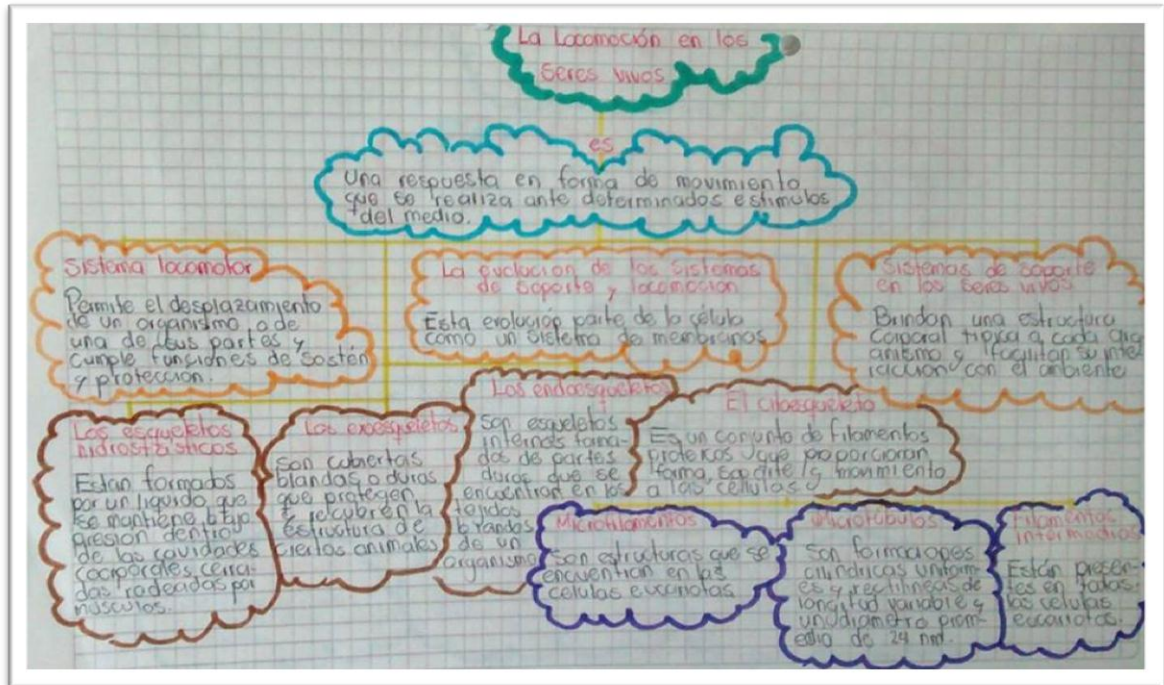 La Locomoción en los
Seres vivos
es
Una respuesta en forma de movimiento
que se realiza ante determinados estimulos
del medio.
Sistema locomotor
Permite el desplazamiento
de un organismo o de
una de sus partes y
cumple funciones de sostén
y proteccion.
La evolucion de los sistemas
de soporte y locomocion
Esta evolución parte de la célula
como un sistema de membranas
Sistemas de soporte
en los seres vivos
Brindan una estructura
corporal tipica a cada org
anismo y facilitan su inte
racción con el ambiente
Los esqueletos
hidrostáticos
Estan formados
por un liquido que
se mantiene bajo
presion dentro
de las cavidades
coorporales, cerra-
das rodeadas por
músculos.
Los exoesqueletos
Son cubiertas
blandas o duras
que protegen
y recubren la
estructura de
ciertos animales
Los endoesqueletos
Son esqueletos
internos forma-
dos de partes
duras que se
encuentran en los
tejidos
blandos
de un
organismo
El citoesqueleto
Es un conjunto de filamentos
proteicos que proporcionan
forma, soporte y movimiento
a las células
Microfilamentos
Son estructuras que se
encuentran en las
celulas eucariotas
Microtubulos
Son formaciones
cilindricas uniform-
es y rectilineas de
longitud variable y
un diametro prom-
edio de 24 nm.
Filamentos
intermedios
Están presen-
tes en todas
las celulas
eucariotas.